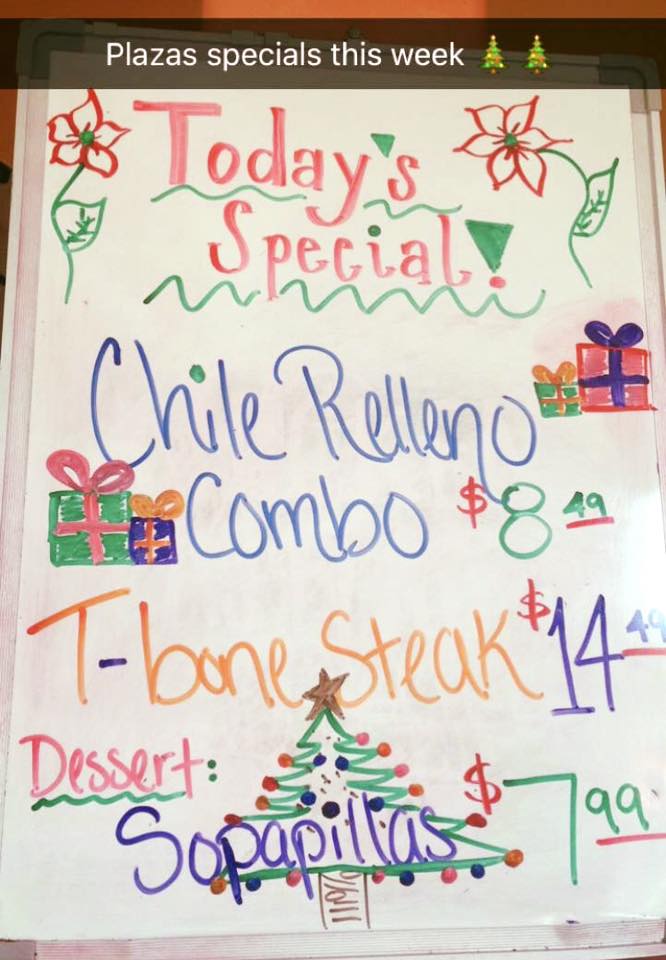 Plazas specials this week 🎄 🎄
Today's
Special!
Chile Relleno
Combo $8.49
T-bone Steak $14.49
Dessert:
Sopapillas $7.99